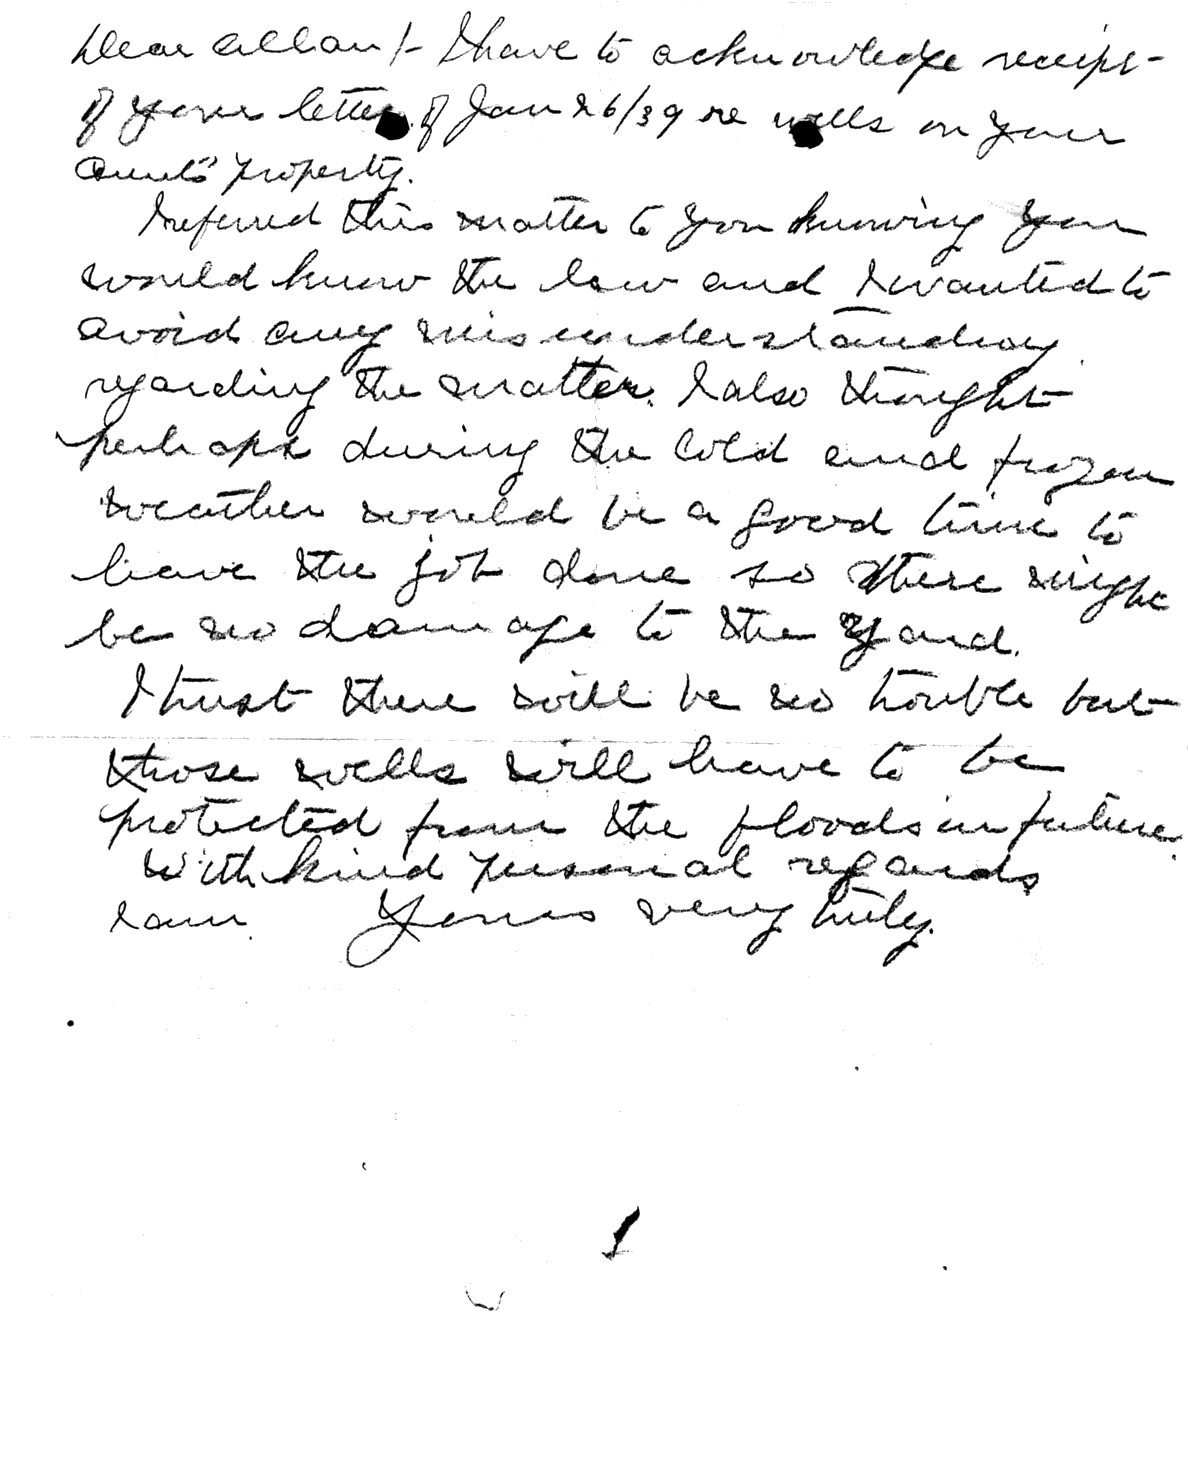 Dear Allan/- I have to acknowledge receipt
of your letter of Jan 26/39 re wells on your
Aunts' property.
I referred this matter to you knowing you
would know the law and I wanted to
avoid any misunderstanding
regarding the matter. I also thought
perhaps during the cold and frozen
weather would be a good time to
have the job done so there might
be no damage to the yard.
I trust there will be no trouble but
those wells will have to be
protected from the floods in future.
With kind personal regards
I am. Yours very truly.